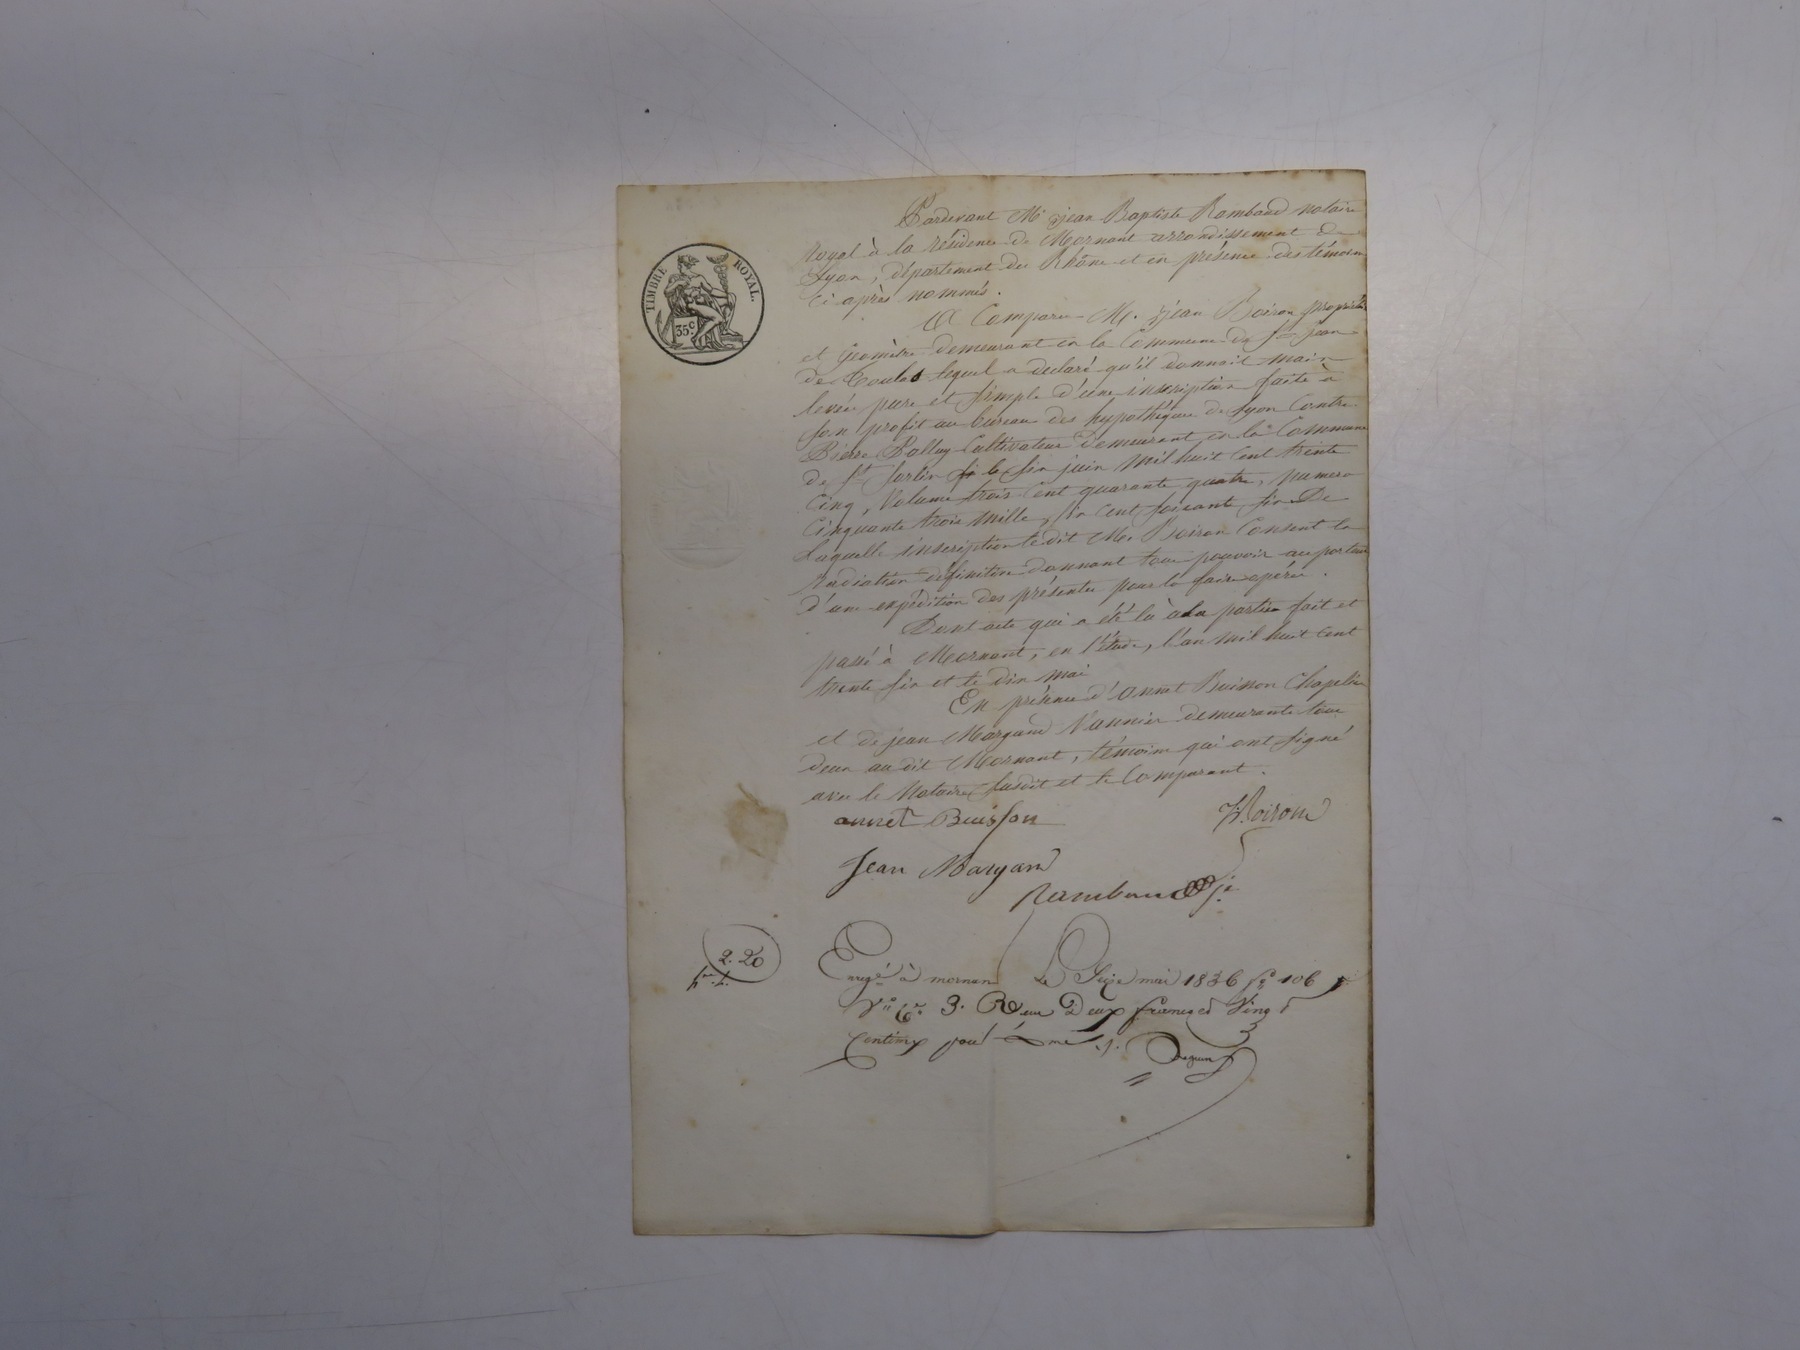 TIMBRE ROYAL.
35c
Pardevant Me jean Baptiste Rambaud notaire
royal à la résidence de Mornant arrondissement de
Lyon, département du Rhône et en présence des témoins
ci après nommés.
A Comparu M. jean Boiron propriétre
et Géomètre demeurant en la Commune de St jean
de Toulas lequel a declaré qu'il donnait main
levée pure et simple d'une inscription faite à
son profit au bureau des hypothèques de Lyon Contre
Pierre Balluy Cultivateur demeurant en la Commune
de St Sorlin le six juin mil huit cent trente
Cinq, Volume trois cent quarante quatre, numero
Cinquante trois mille, six cent soixante six De
laquelle inscription le dit M. Boiron Consent la
radiation définitive donnant tous pouvoir au porteur
d'une expédition des présentes pour la faire opérer.
Dont acte qui a été lu à la partie fait et
passé à Mornant, en l'étude, l'an mil huit cent
trente six et le dix mai
En présence d'Annet Buisson Chapelier
et de jean Margand Vannier demeurants tous
deux au dit Mornant, témoins qui ont signé
avec le Notaire susdit et le Comparant.
annet Buisson
J. Boiron
Jean Margand
Rambaud
2. 20
Enregé à mornant Le Seize mai 1836 fo 106
Vo Ce 3. Reçu Deux francs Vingt
Centimes pour